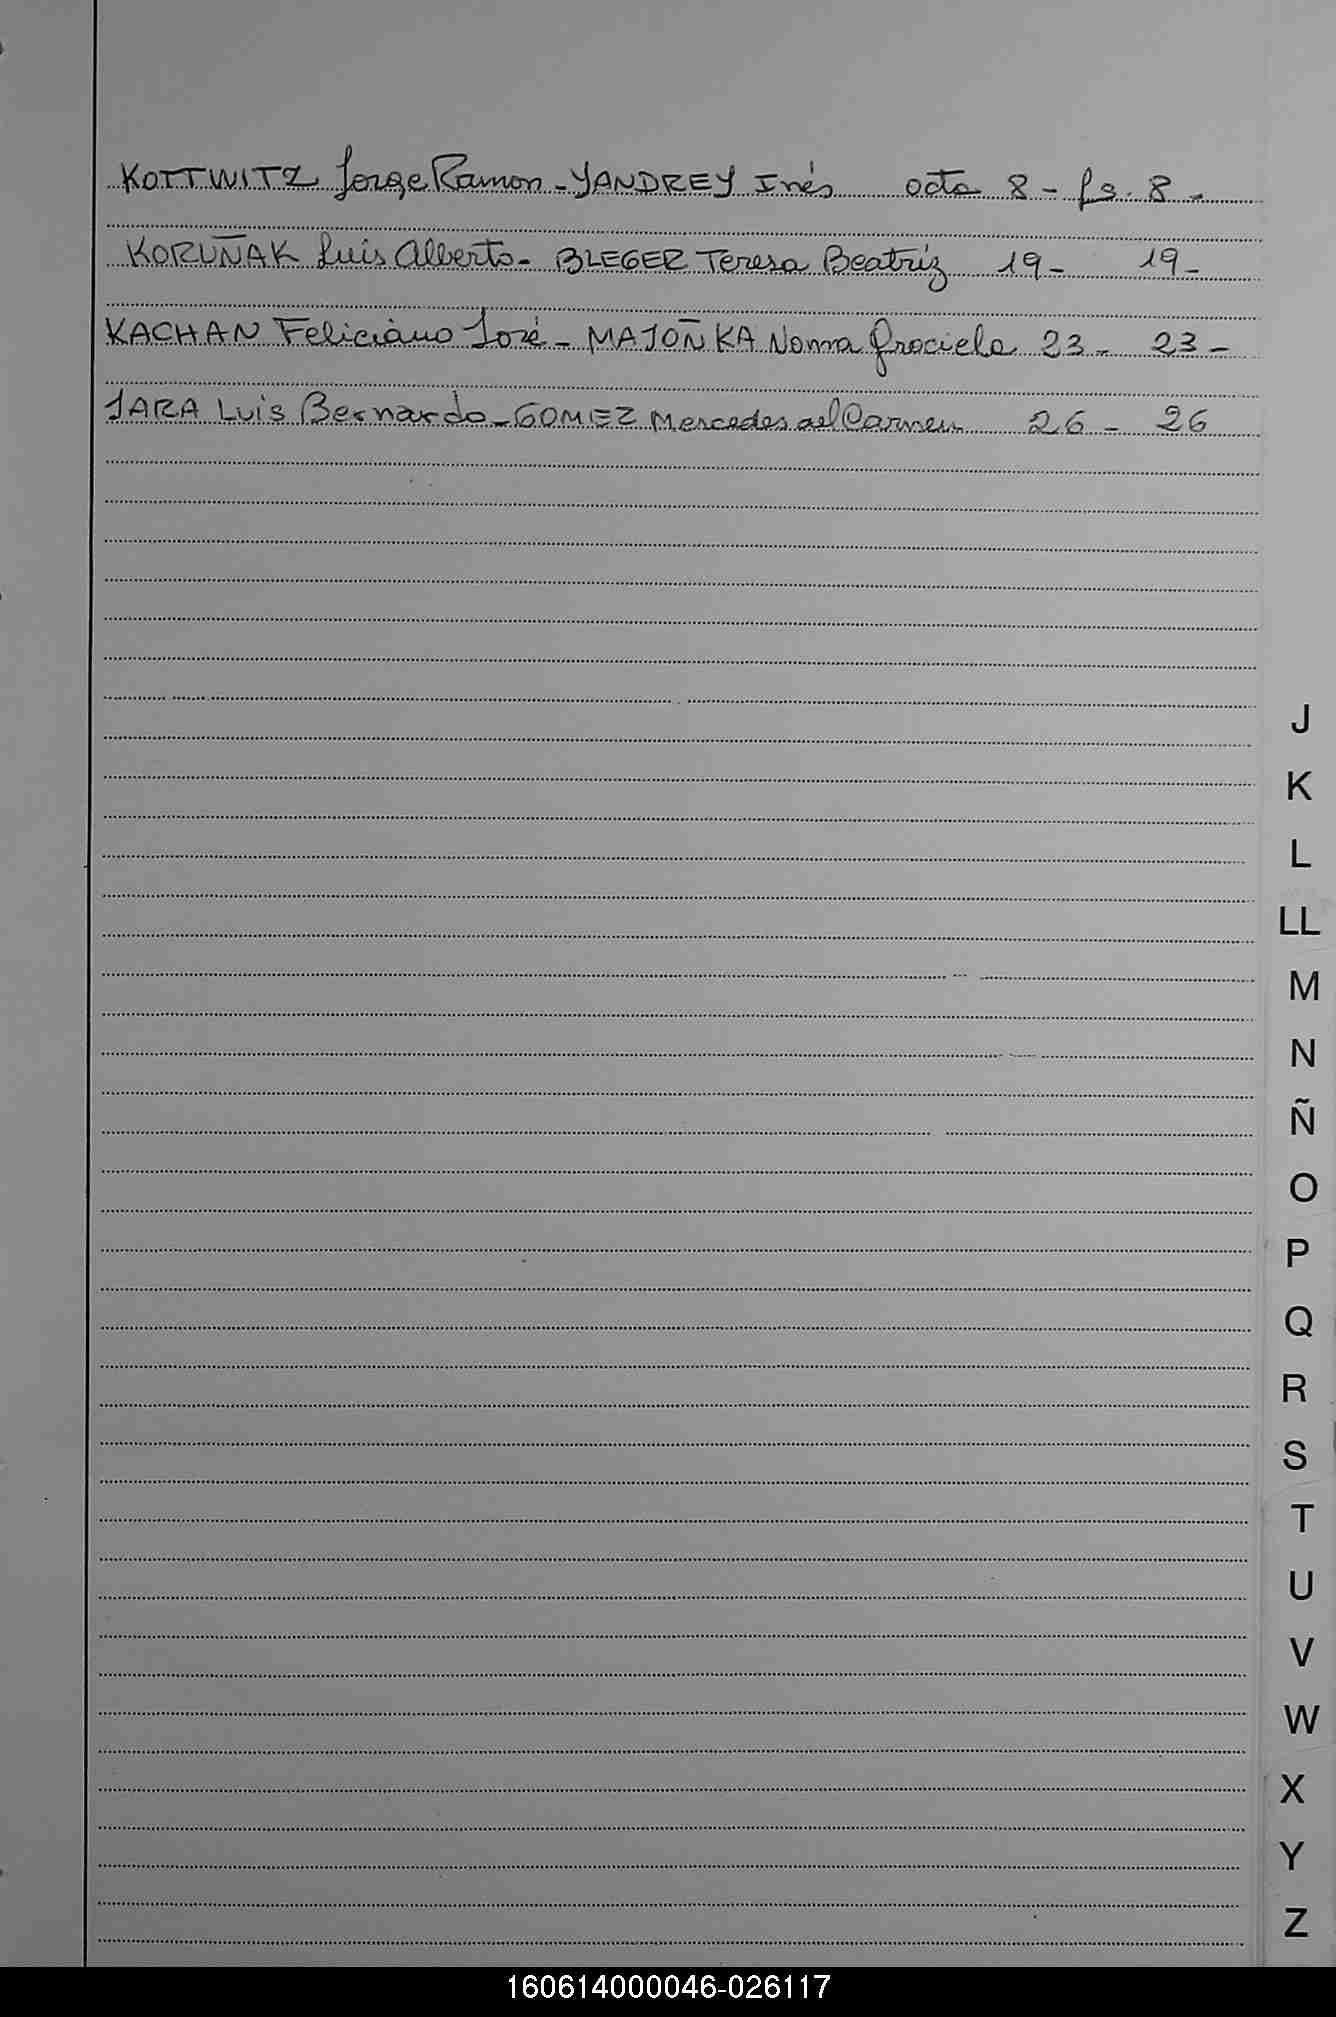 KOTTWITZ Jorge Ramon - YANDREY Inés acta 8 - fs. 8 -
KORUÑAK Luis Alberto - BLEGER Teresa Beatriz 19 - 19 -
KACHAN Feliciano José - MAJOÑKA Norma Graciela 23 - 23 -
JARA Luis Bernardo - GOMEZ Mercedes del Carmen 26 - 26
J
K
L
LL
M
N
Ñ
O
P
Q
R
S
T
U
V
W
X
Y
Z
160614000046-026117